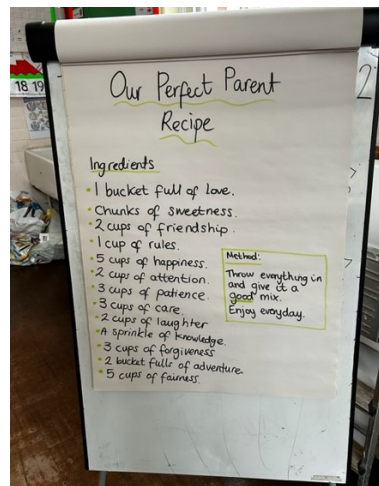 18 19
2
Our Perfect Parent
Recipe
Ingredients
1 bucket full of love.
Chunks of sweetness.
2 cups of friendship.
1 cup of rules.
5 cups of happiness.
2 cups of attention.
3 cups of patience.
3 cups of care.
2 cups of laughter
A sprinkle of knowledge.
3 cups of forgiveness
2 bucket fulls of adventure.
5 cups of fairness.
Method:
Throw everything in
and give it a
good mix.
Enjoy everyday.